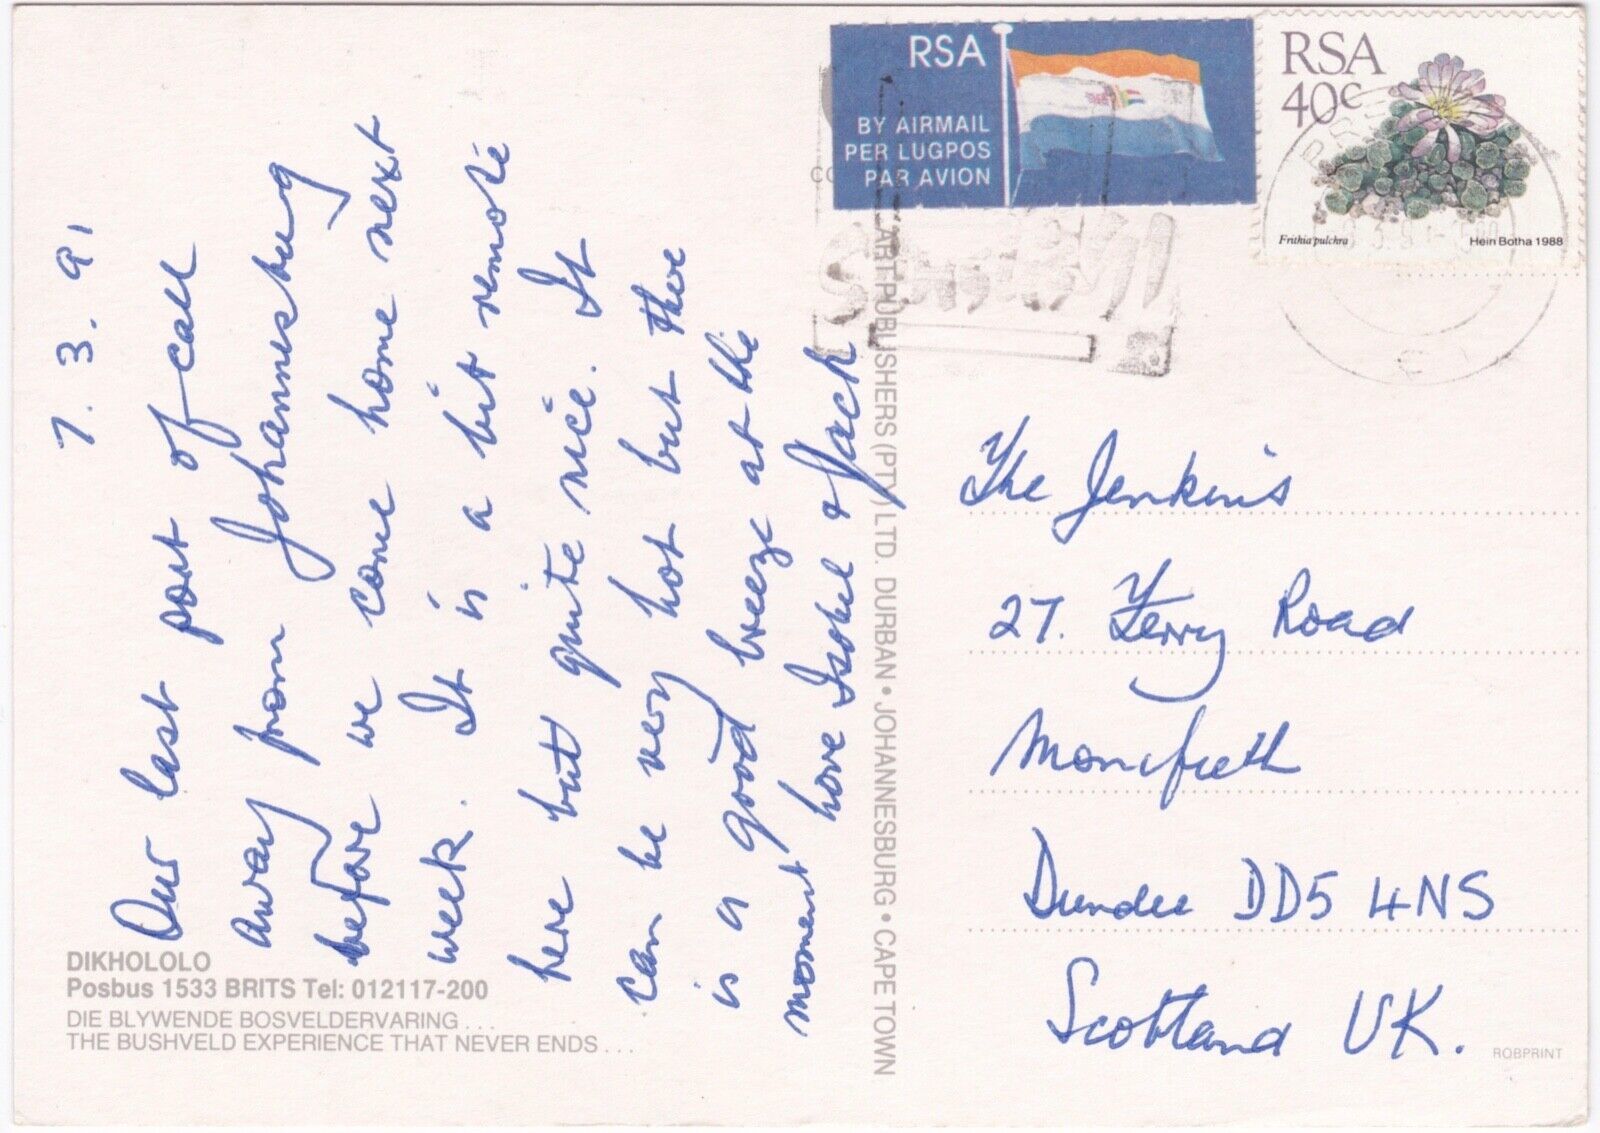 7. 3. 91
Our last port of call
away from Johannesburg
before we come home next
week. It is a bit remote
here but quite nice. It
can be very hot but there
is a good breeze at the
moment love Isobel & Jack
DIKHOLOLO
Posbus 1533 BRITS Tel: 012117-200
DIE BLYWENDE BOSVELDERVARING . . .
THE BUSHVELD EXPERIENCE THAT NEVER ENDS . . .
ART PUBLISHERS (PTY) LTD. DURBAN • JOHANNESBURG • CAPE TOWN
RSA
BY AIRMAIL
PER LUGPOS
PAR AVION
RSA
40c
Frithia pulchra
Hein Botha 1988
The Jenkins
27. Ferry Road
Monifieth
Dundee DD5 4NS
Scotland UK.
ROBPRINT